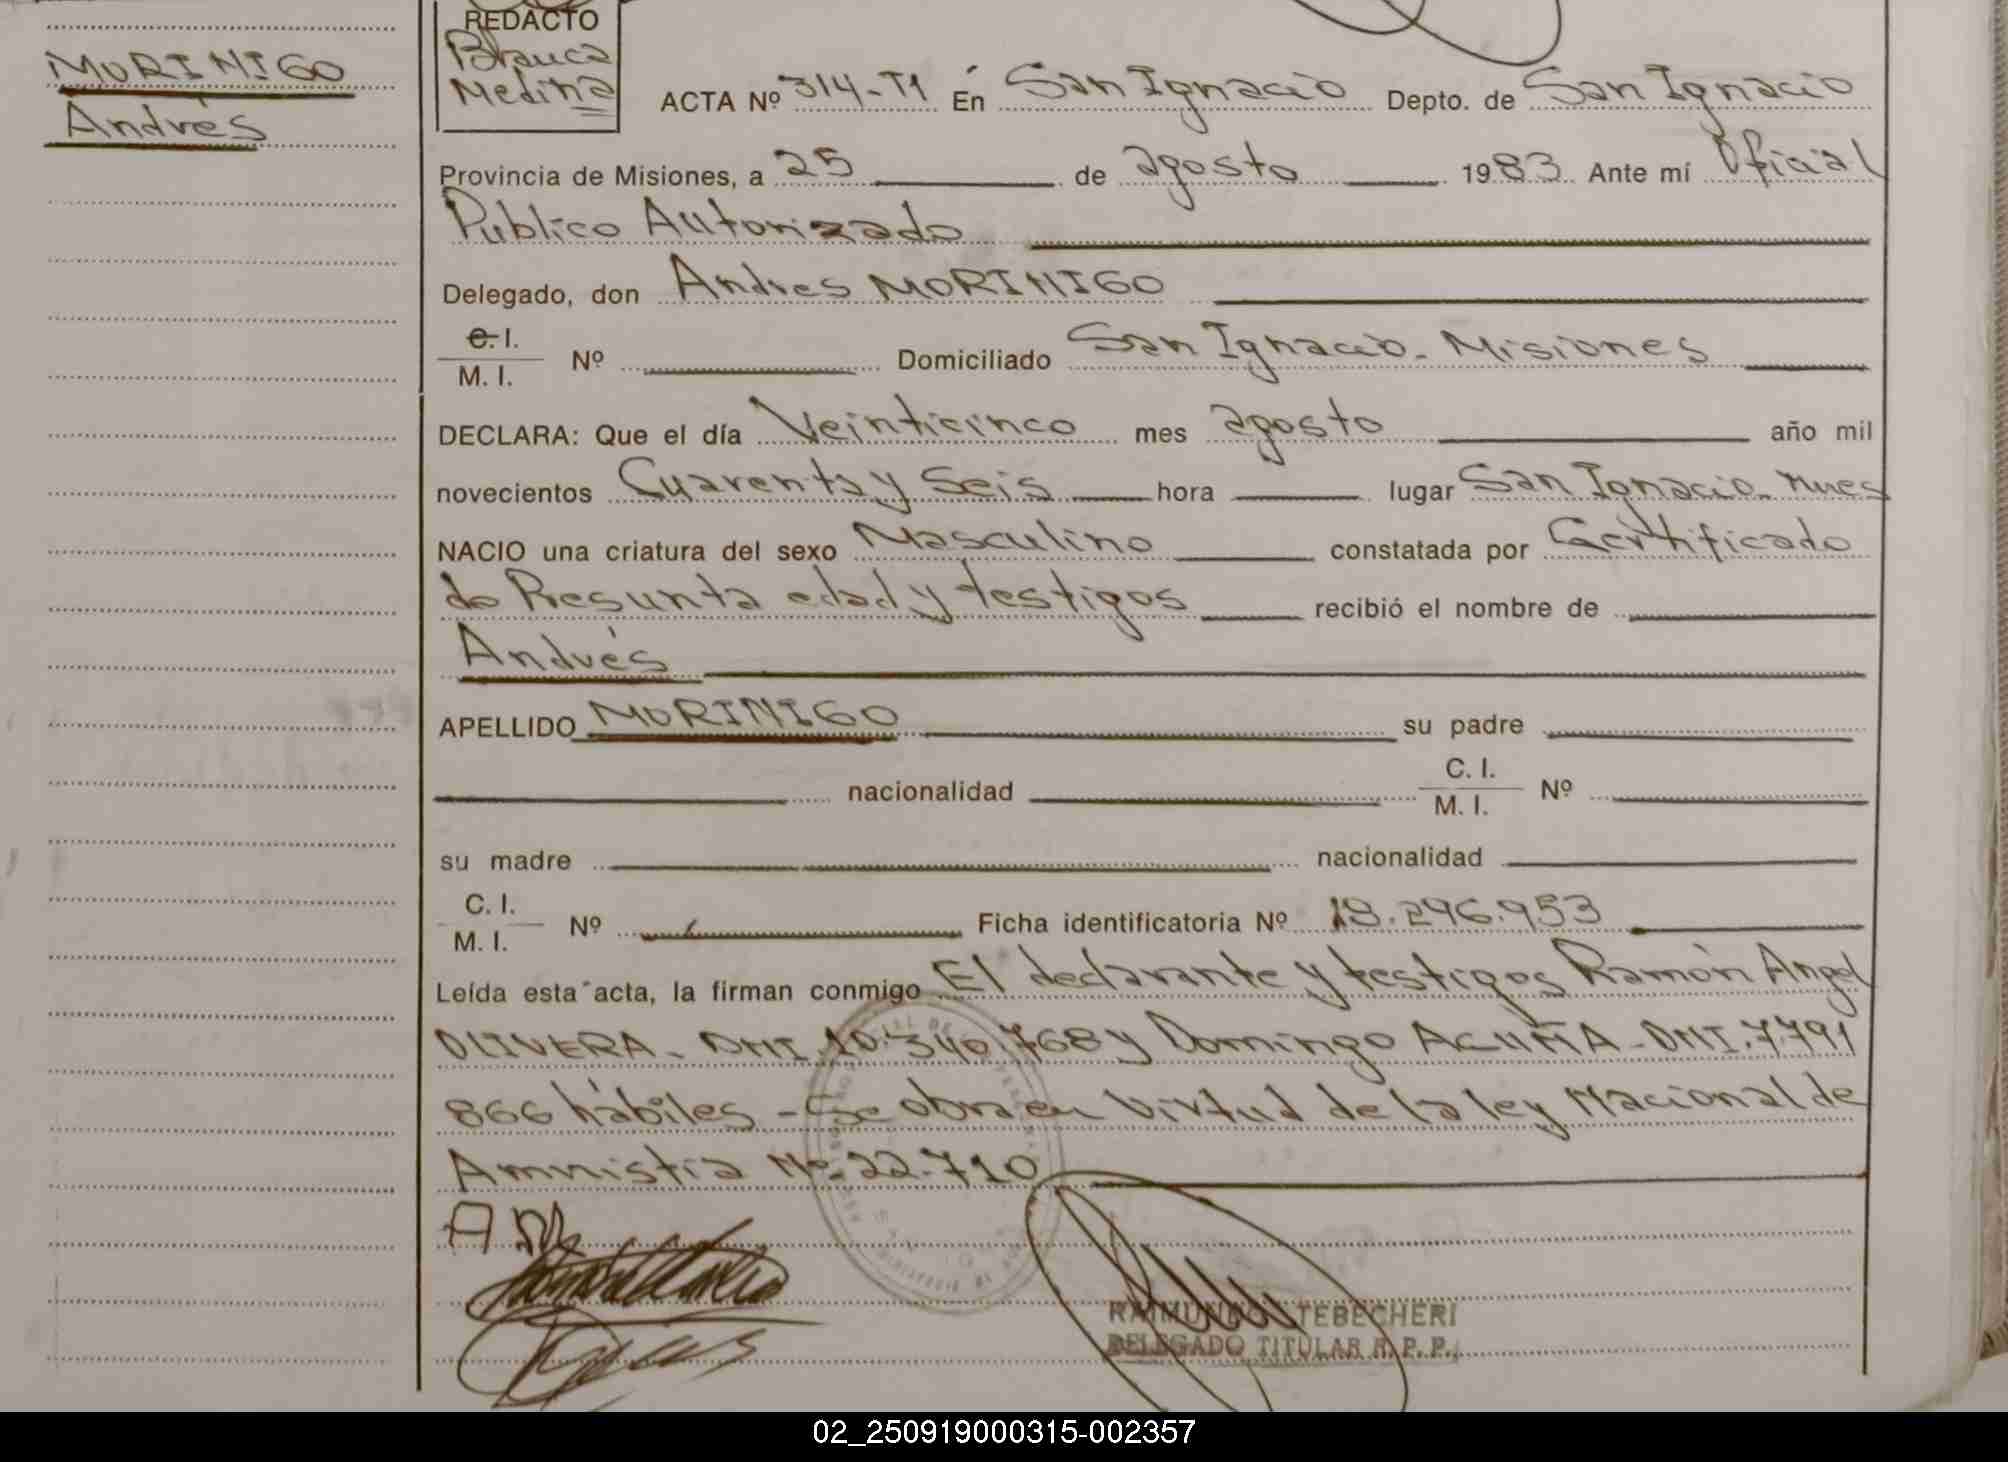 MORINIGO
Andrés
REDACTO
Blanca
Medina
ACTA Nº 314-T1 En San Ignacio Depto. de San Ignacio
Provincia de Misiones, a 25 de agosto 1983 Ante mí Oficial
Publico Autorizado
Delegado, don Andres MORINIGO
C. I.
M. I. Nº Domiciliado San Ignacio. Misiones
DECLARA: Que el día Veinticinco mes agosto año mil
novecientos Cuarenta y Seis hora lugar San Ignacio. Mnes
NACIO una criatura del sexo Masculino constatada por Certificado
de Presunta edad y testigos recibió el nombre de
Andrés
APELLIDO MORINIGO su padre
nacionalidad C. I. M. I. Nº
su madre nacionalidad
C. I.
M. I. Nº Ficha identificatoria Nº 18.296.953
Leída esta acta, la firman conmigo El declarante y testigos Ramón Angel
OLIVERA - DNI. 10.340.768 y Domingo ACUÑA - DNI. 7.791
866 hábiles - Se obra en virtud de la ley Nacional de
Amnistia Nº 22.710
RAIMUNDO TEBECHERI
DELEGADO TITULAR R. P. P.
02_250919000315-002357